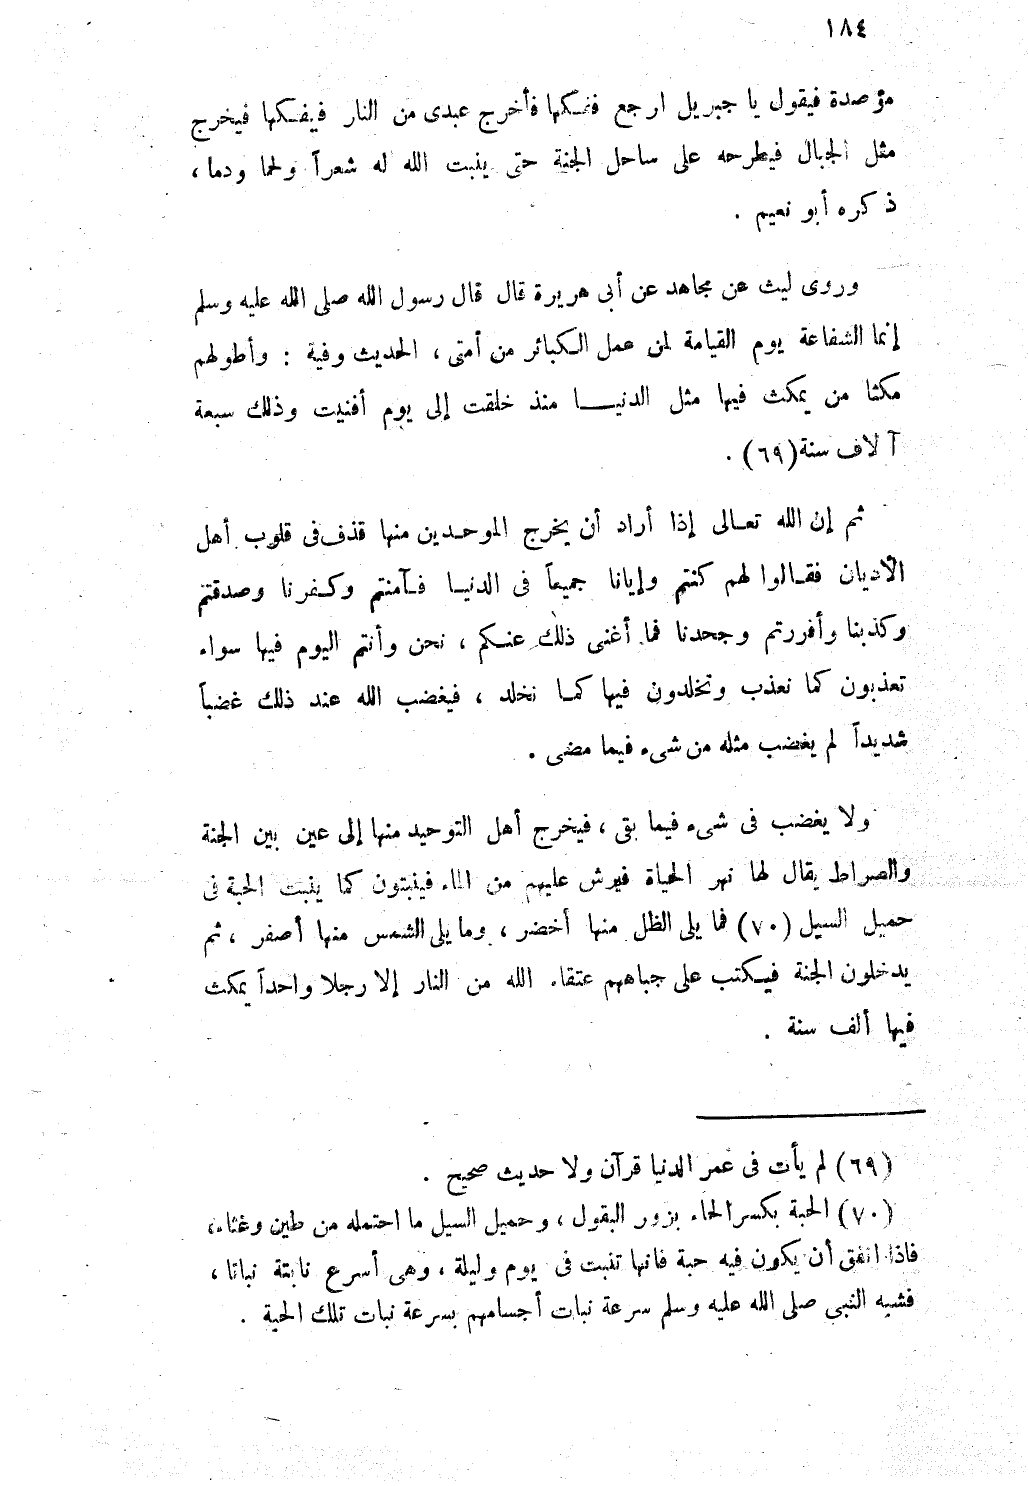 ١٨٤
مؤصدة فيقول يا جبريل ارجع ففكها فأخرج عبدى من النار فيفكها فيخرج
مثل الجبال فيطرحه على ساحل الجنة حتى ينبت الله له شعراً ولحما ودما ،
ذكره أبو نعيم .
وروى ليث عن مجاهد عن أبى هريرة قال قال رسول الله صلى الله عليه وسلم
إنما الشفاعة يوم القيامة لمن عمل الكبائر من أمتى ، الحديث وفية : وأطولهم
مكثا من يمكث فيها مثل الدنيا منذ خلقت إلى يوم أفنيت وذلك سبعة
آلاف سنة(٦٩) .
ثم إن الله تعالى إذا أراد أن يخرج الموحدين منها قذف فى قلوب أهل
الأديان فقالوا لهم كنتم وإيانا جميعاً فى الدنيا فآمنتم وكفرنا وصدقتم
وكذبنا وأقررتم وجحدنا فما أغنى ذلك عنكم ، نحن وأنتم اليوم فيها سواء
تعذبون كما نعذب وتخلدون فيها كما نخلد ، فيغضب الله عند ذلك غضباً
شديداً لم يغضب مثله من شىء فيما مضى .
ولا يغضب فى شىء فيما بقى ، فيخرج أهل التوحيد منها إلى عين بين الجنة
والصراط يقال لها نهر الحياة فيرش عليهم من الماء فينبتون كما ينبت الحبة فى
حميل السيل (٧٠) فما يلى الظل منها أخضر ، وما يلى الشمس منها أصفر ، ثم
يدخلون الجنة فيكتب على جباههم عتقاء الله من النار إلا رجلا واحداً يمكث
فيها ألف سنة .
(٦٩) لم يأت فى عمر الدنيا قرآن ولا حديث صحيح .
(٧٠) الحبة بكسر الحاء بزور البقول ، وحميل السيل ما احتمله من طين وغثاء ،
فاذا اتفق أن يكون فيه حبة فانها تنبت فى يوم وليلة ، وهى أسرع نابتة نباتا ،
فشبه النبى صلى الله عليه وسلم سرعة نبات أجسامهم بسرعة نبات تلك الحبة .